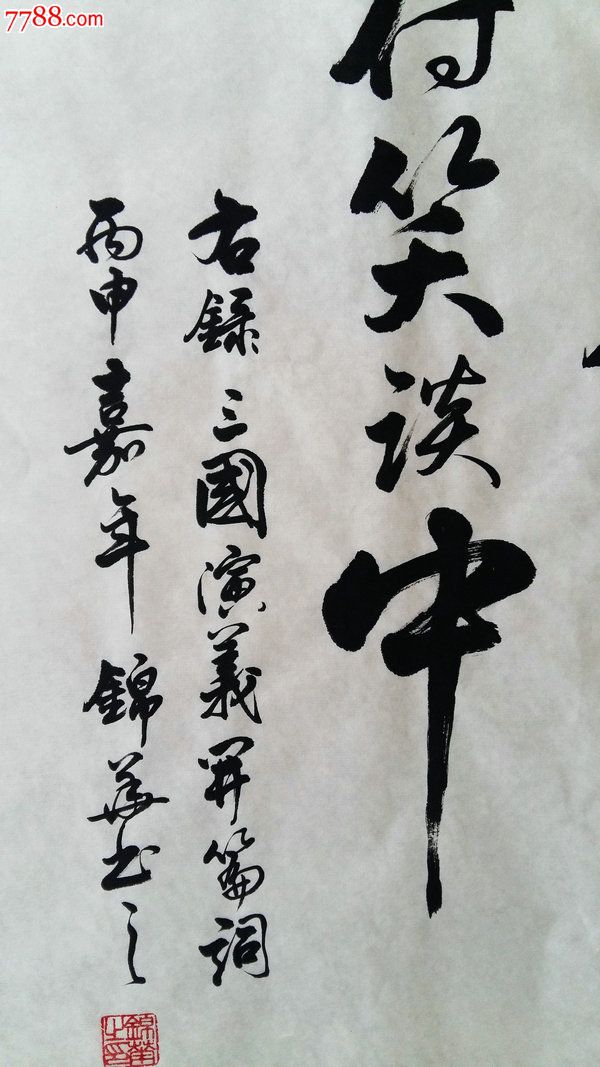 7788.com
付笑谈中
右録三國演義開篇詞
丙申嘉年錦華书之